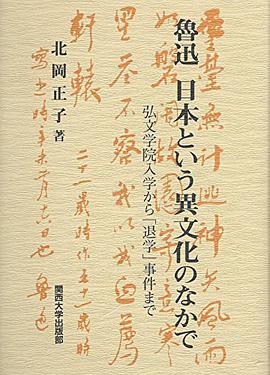 魯迅 日本という異文化のなかで
弘文学院入学から「退学」事件まで
北岡正子 著
関西大学出版部
靈臺無計逃神矢風雨
如磐闇故園寄意寒
星荃不察我以我血薦
軒轅
二十一歳時作五十一歳時
寫之時辛未二月十六日也 魯迅